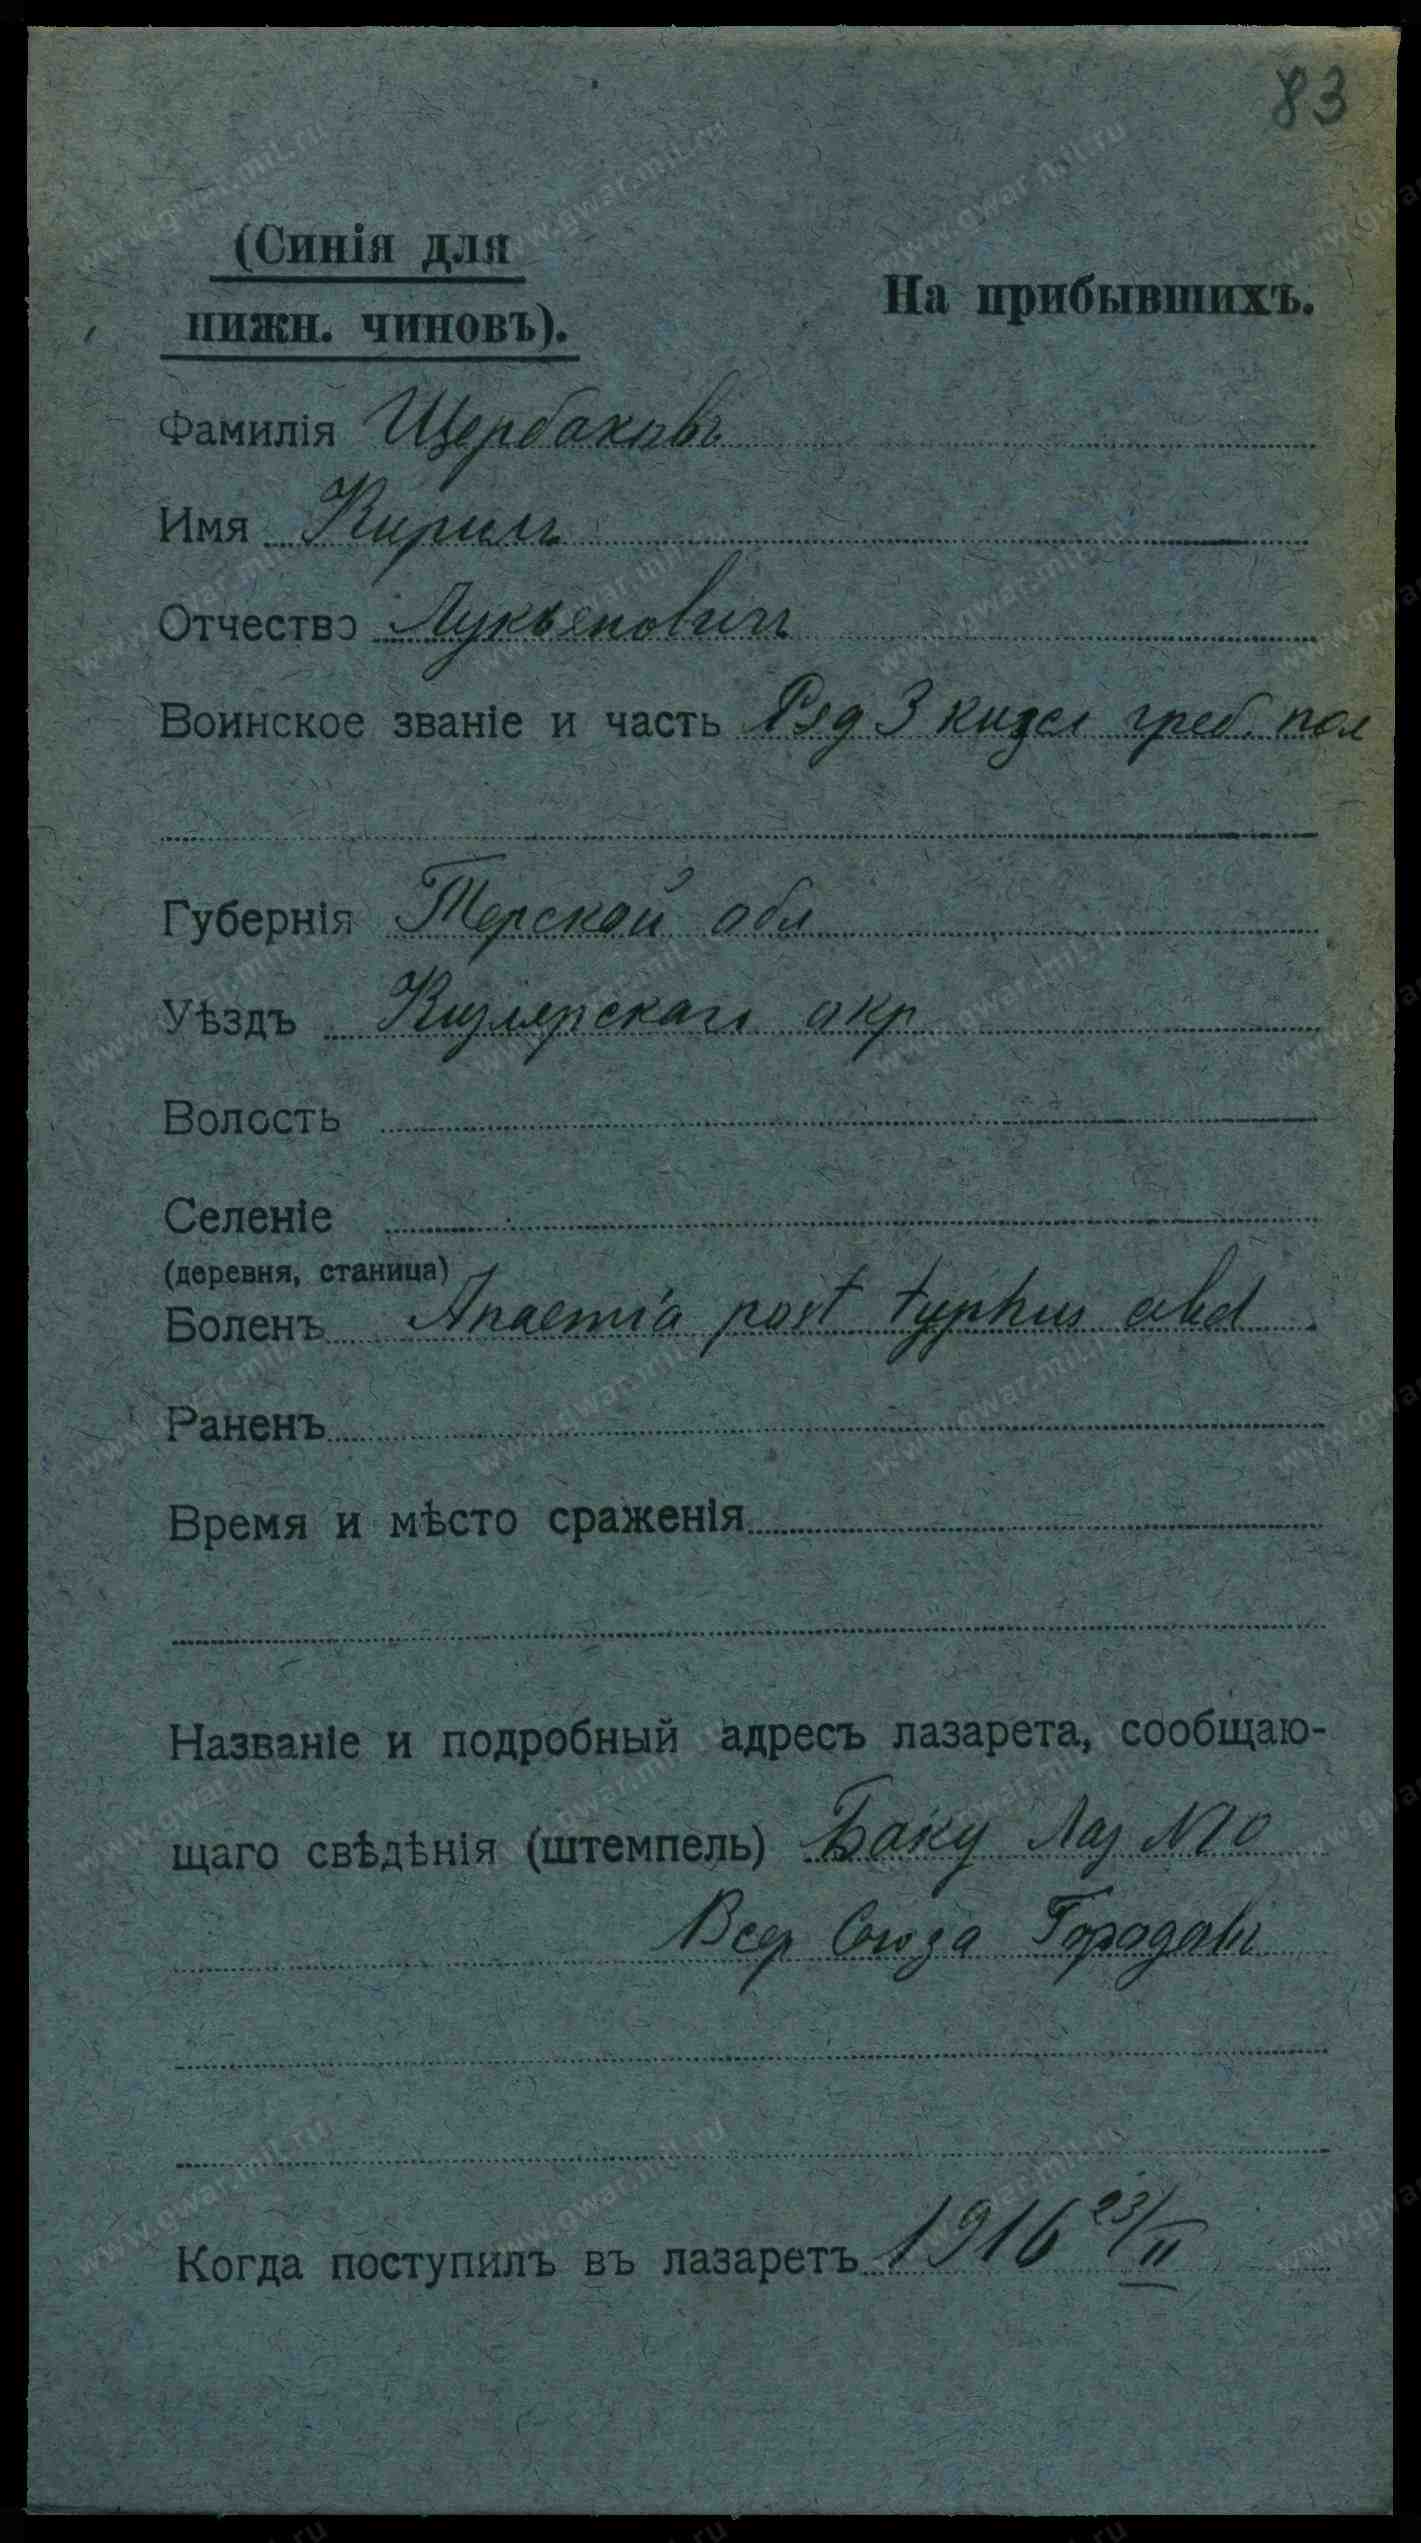 83
(Синія для
нижн. чиновъ).
На прибывшихъ.
Фамилія Щербаковъ
Имя Кирилъ
Отчество Лукьяновичъ
Воинское званіе и часть Ряд 3 кизл греб. пол
Губернія Терской обл
Уѣздъ Кизлярскаго окр
Волость
Селеніе
(деревня, станица)
Боленъ Anaemia post typhus abd
Раненъ
Время и мѣсто сраженія
Названіе и подробный адресъ лазарета, сообщаю-
щаго свѣдѣнія (штемпель) Баку Лаз №10
Всер Союза Городовъ
Когда поступилъ въ лазаретъ 1916 23/II